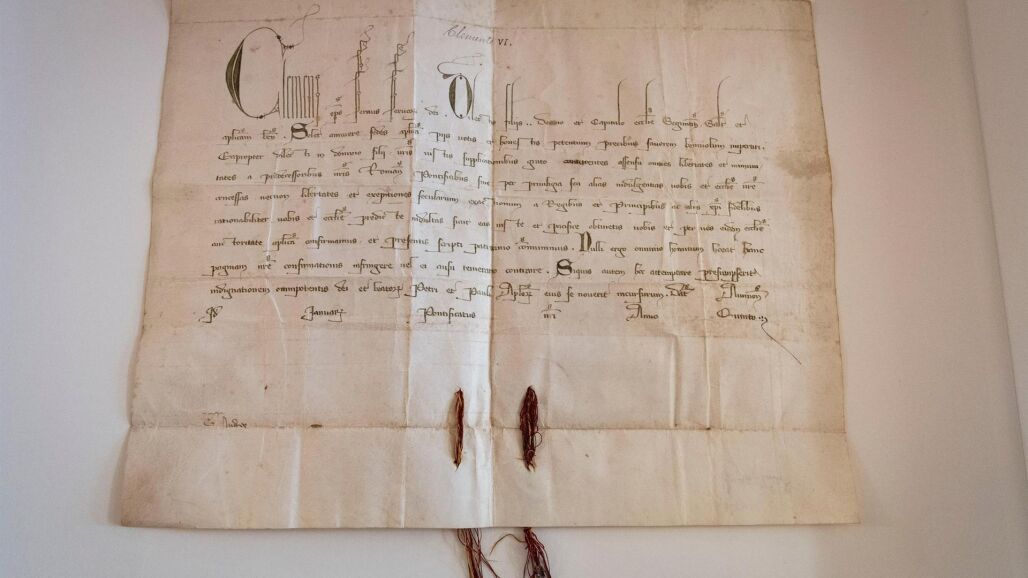 Clemente VI.
Clemens ep̃s servus servor̃ dei . Dilectis filiis . . Decano et Capitulo eccl̃ie Salt̃ et
aplicam ben̄ . Solet annuere sedes aplica piis votis et honestis petentium precibus favorem benivolum impertiri .
Eapropter dilecti in domino filii vr̃is iustis supplicationibus grato concurrentes assensu omnes libertates et immuni
tates a predecessoribus nr̃is Roman̄ Pontificibus sive per privilegia seu alias indulgentias vobis et eccl̃ie vr̃e
concessas necnon libertates et exemptiones secularium exactionum a Regibus et Principibus ac aliis xp̄i fidelibus
rationabiliter vobis et eccl̃ie predicte indultas sicut eas iuste et pacifice obtinetis vobis et per vos eidem eccl̃ie
auctoritate aplica confirmamus et presentis scripti patrocinio communimus . Nulli ergo omnino hominum liceat hanc
paginam nr̃e confirmationis infringere vel ei ausu temerario contraire . Siquis autem hoc attemptare presumpserit
indignationem omnipotentis dei et beator̃ Petri et Pauli Aplor̃ eius se noverit incursurum . Dat̃ Avinion̄
Januar̃ Pontificatus nr̃i Anno Quinto